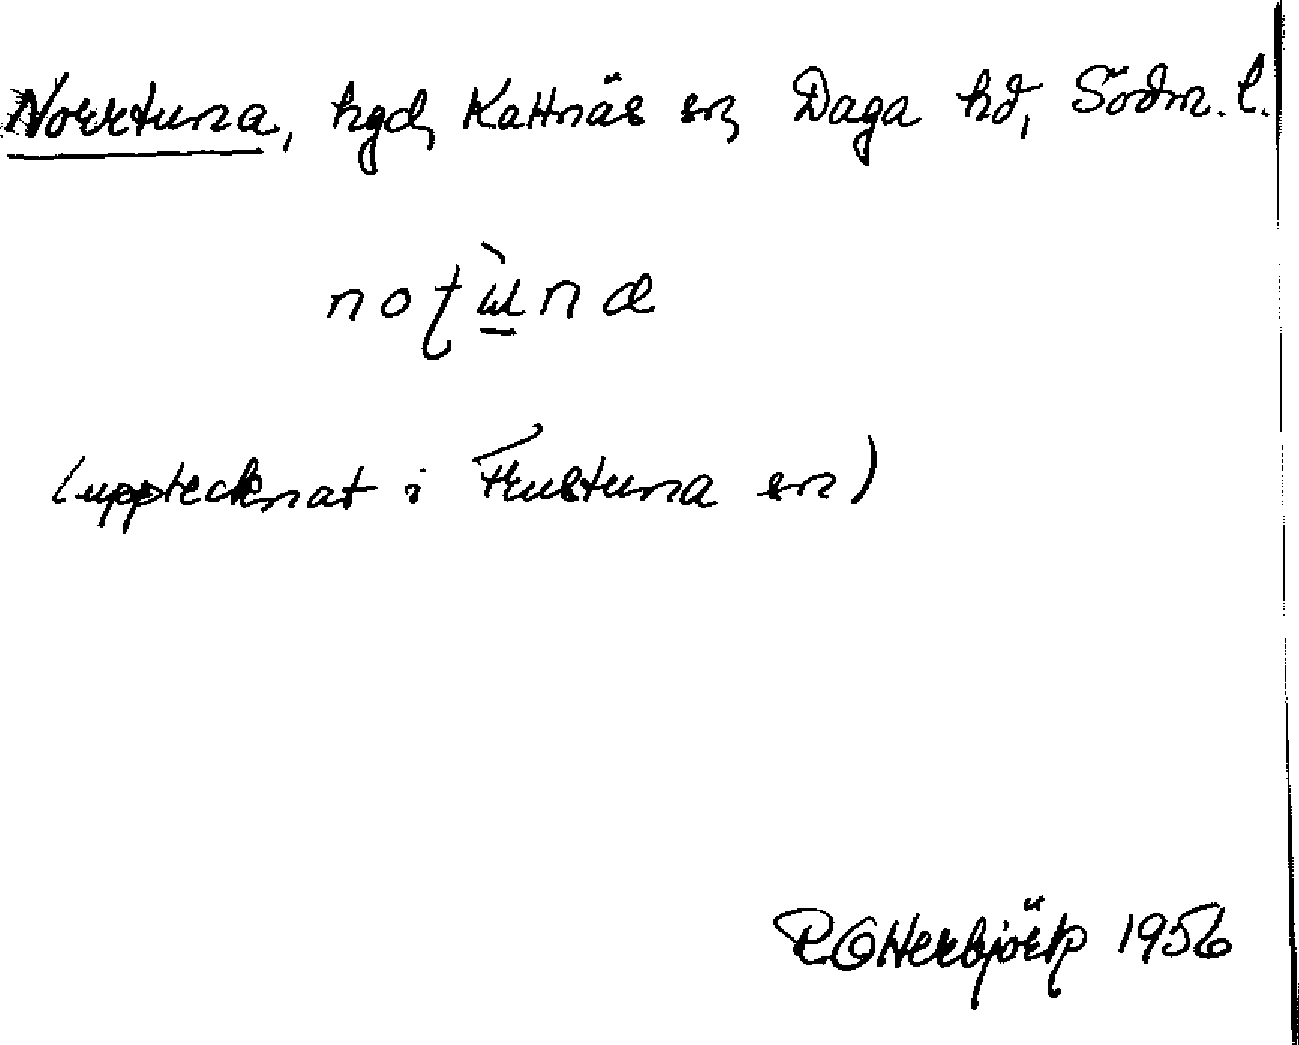 Norrtuna, hgd, Kattnäs sn, Daga hd, Södm. l.
noʈù̱na
(upptecknat i Frustuna sn)
R Otterbjörk 1956